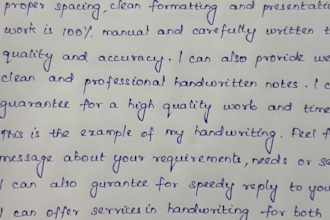 proper spacing, clean formatting and presentati
work is 100% manual and carefully written t
quality and accuracy. I can also provide we
clean and professional handwritten notes. I c
guarantee for a high quality work and time
This is the example of my handwriting. Feel f
message about your requirements, needs or se
I can also gurantee for speedy reply to you
I can offer services in handwriting for both